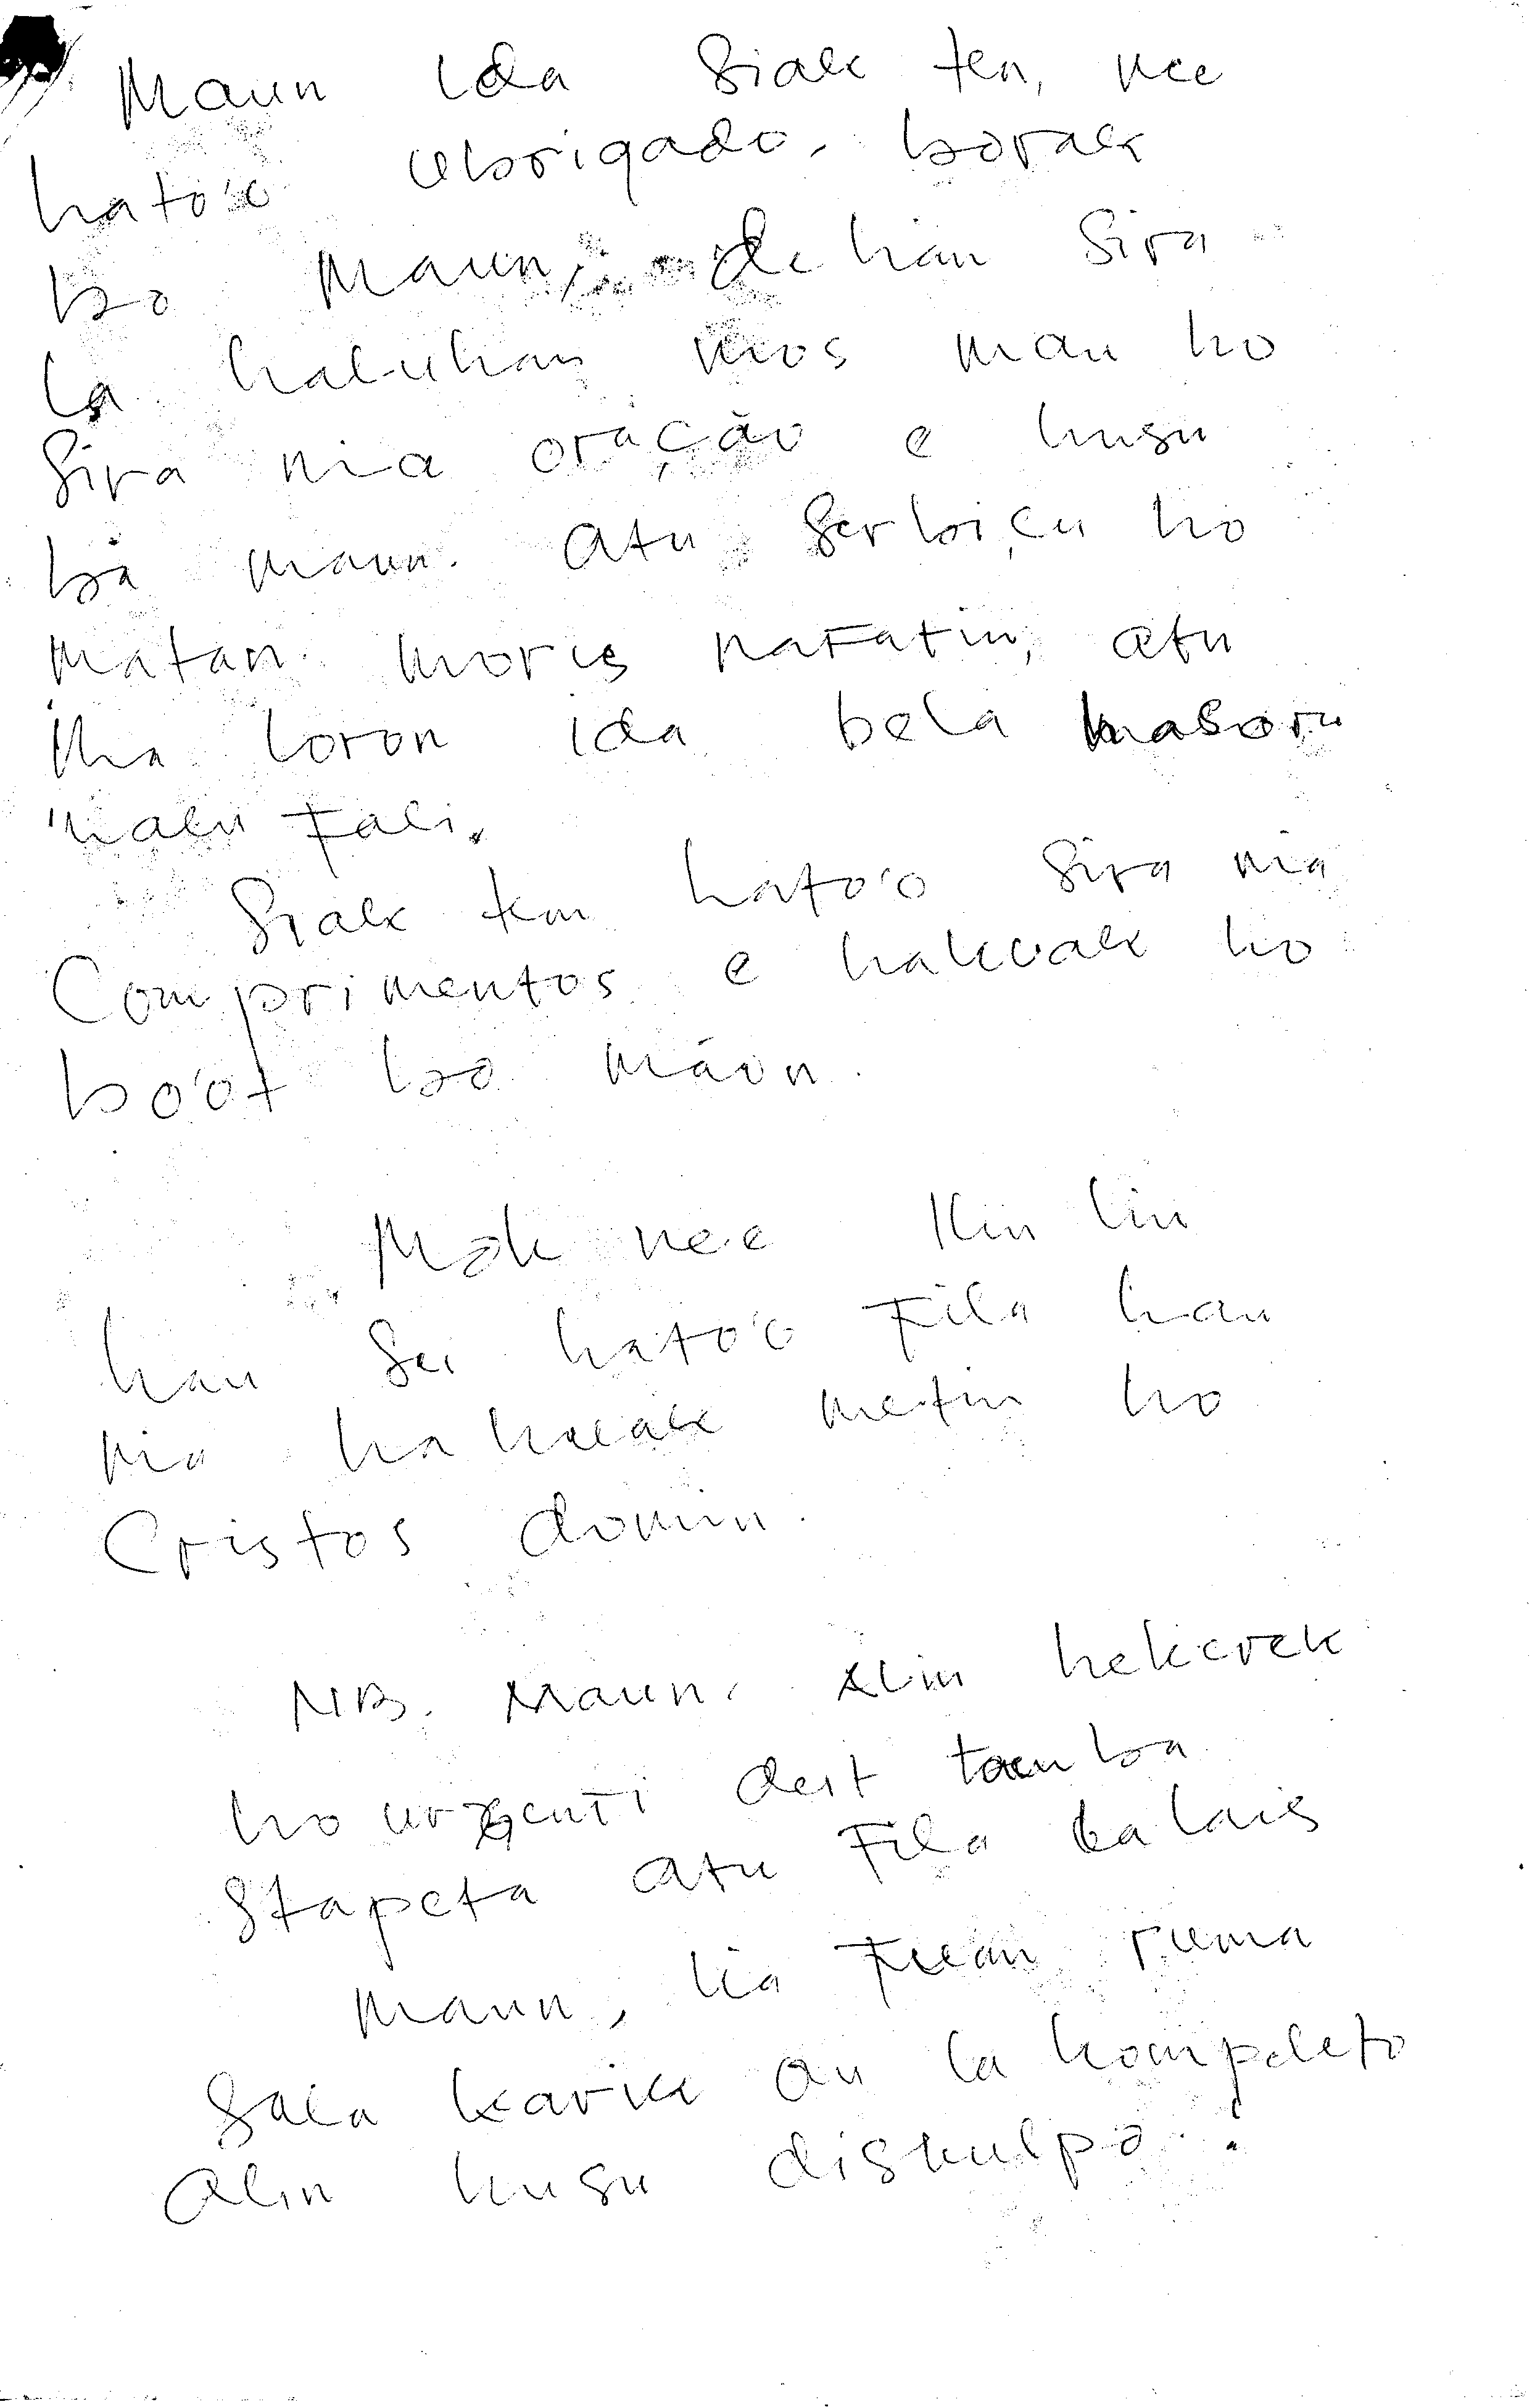 Maun Ida Siak ten, nee
hato'o obrigado, borak
bo Maun, dehan Sira
la haluhan mos mau ho
Sira nia oração e husu
ba maun. atu Serbiçu ho
matan moris nafatin, atu
iha loron ida bela hasoru
malu fali.
Siak ten hato'o Sira nia
Comprimentos e hakuak ho
bo'ot bo máun.
Mak nee
hau sei hato'o fila hau
nia hakuak metin ho
Cristos domin.
NB. Maun, alin hekerek
ho urgenti deit tamba
Stapeta atu fila lalais
Maun, lia fuan ruma
Sala karik ou la kompleto
Alin husu diskulpa!